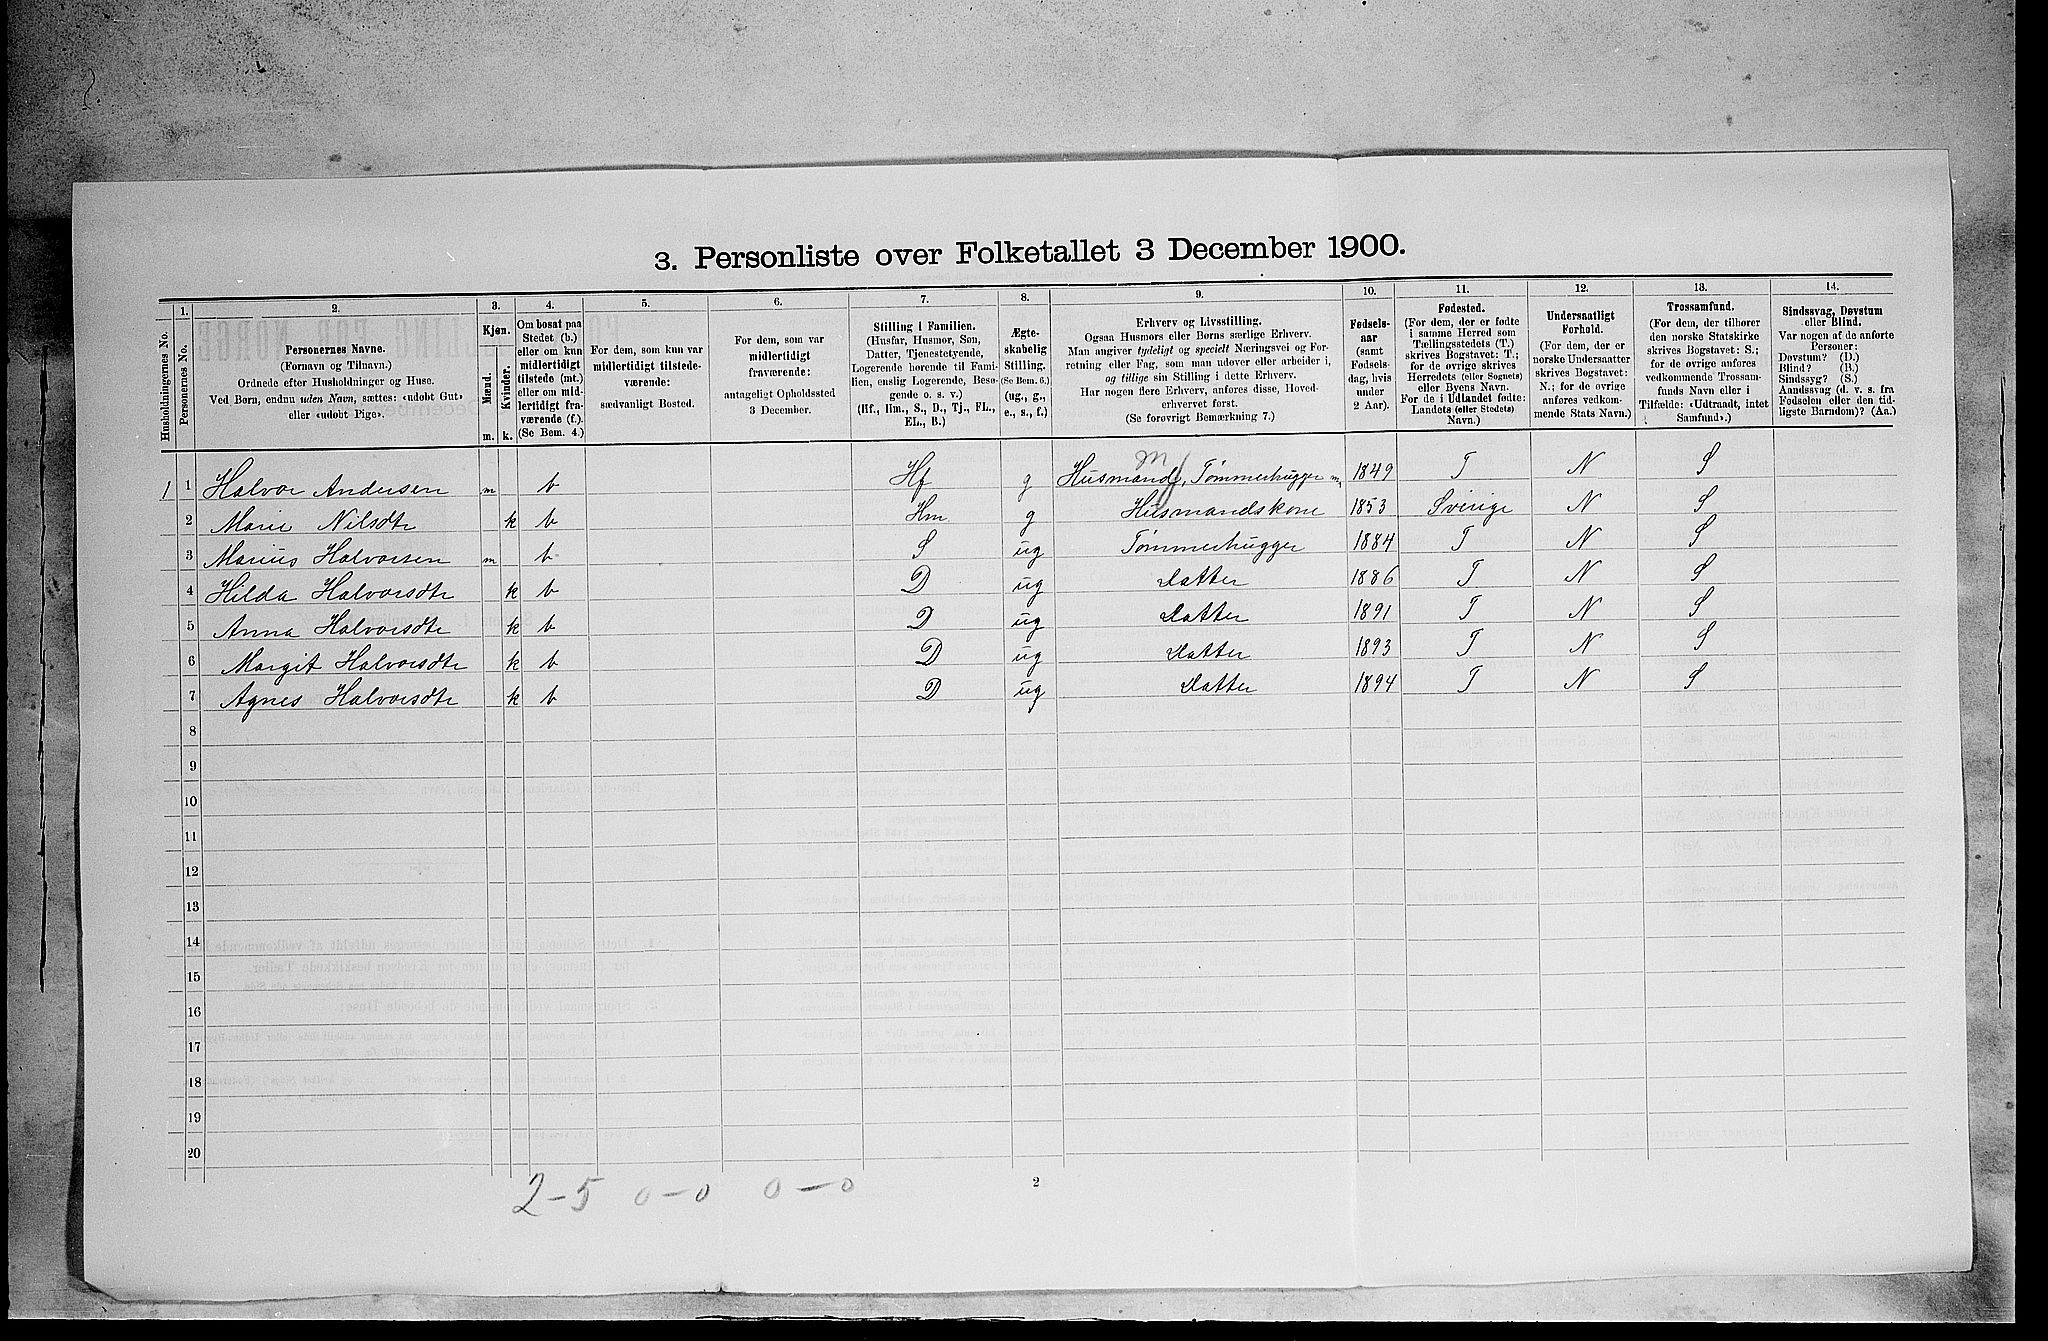 3. Personliste over Folketallet 3 December 1900.
Husholdningernes No.
1. Personernes No.
2. Personernes Navne. (Fornavn og Tilnavn.) Ordnede efter Husholdninger og Huse. Ved Børn, endnu uden Navn, sættes: «udobt Gut» eller «udobt Pige».
3. Kjøn. Mænd. m. Kvinder. k.
4. Om bosat paa Stedet (b.) eller om kun midlertidigt tilstede (mt.) eller om midlertidigt fraværende (f.). (Se Bem. 4.)
5. For dem, som kun var midlertidigt tilstedeværende: sædvanligt Bosted.
6. For dem, som var midlertidigt fraværende: antageligt Opholdssted 3 December.
7. Stilling i Familien. (Husfar, Husmor, Søn, Datter, Tjenestetyende, Logerende hørende til Familien, enslig Logerende, Besøgende o. s. v.) (Hf., Hm., S., D., Tj., FL., EL., B.)
8. Ægteskabelig Stilling. (Se Bem. 6.) (ug., g., e., s., f.)
9. Erhverv og Livsstilling. Ogsaa Husmors eller Børns særlige Erhverv. Man angiver tydeligt og specielt Næringsvei og Forretning eller Fag, som man udover eller arbeider i, og tillige sin Stilling i dette Erhverv. Har nogen flere Erhverv, anføres disse, Hovederhvervet først. (Se forøvrigt Bemærkning 7.)
10. Fødselsaar (samt Fødselsdag, hvis under 2 Aar).
11. Fødested. (For dem, der er fødte i samme Herred som Tællingsstedets (T.) skrives Bogstavet: T.; for de øvrige skrives Herredets (eller Sognets) eller Byens Navn. For de i Udlandet fødte: Landets (eller Stedets) Navn.)
12. Undersaatligt Forhold. (For dem, der er norske Undersaatter skrives Bogstavet: N.; for de øvrige anføres vedkommende Stats Navn.)
13. Trossamfund. (For dem, der tilhører den norske Statskirke skrives Bogstavet: S.; for de øvrige anføres vedkommende Trossamfunds Navn eller i Tilfælde: «Udtraadt, intet Samfund».)
14. Sindssvag, Døvstum eller Blind. Var nogen af de anførte Personer: Døvstum? (D.) Blind? (B.) Sindssyg? (S.) Aandssvag (d. v. s. fra Fødselen eller den tidligste Barndom)? (Aa.)
1 1 Halvor Andersen m b Hf g Husmand, Tømmerhugger 1849 T N S
2 Marie Nilsdtr k b Hm g Husmandskone 1853 Sverige N S
3 Marius Halvorsen m b S ug Tømmerhugger 1884 T N S
4 Hilda Halvorsdtr k b D ug Datter 1886 T N S
5 Anna Halvorsdtr k b D ug Datter 1891 T N S
6 Margit Halvorsdtr k b D ug Datter 1893 T N S
7 Agnes Halvorsdtr k b D ug Datter 1894 T N S
8
9
10
11
12
13
14
15
16
17
18
19
20
2-5 0-0 0-0
2